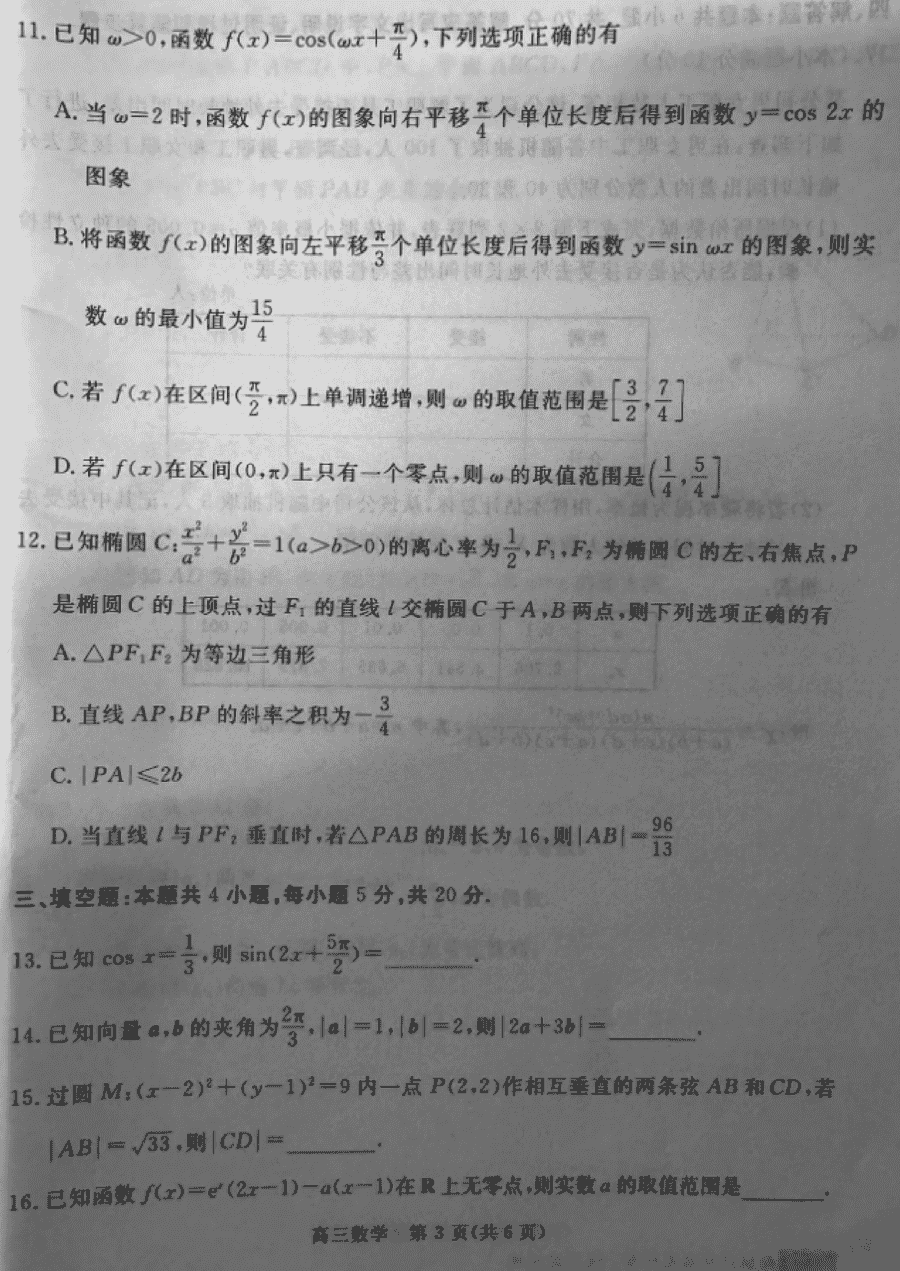 11. 已知 ω>0,函数 f(x)=cos(ωx+π/4),下列选项正确的有
A. 当 ω=2 时,函数 f(x)的图象向右平移π/4个单位长度后得到函数 y=cos 2x 的
图象
B. 将函数 f(x)的图象向左平移π/3个单位长度后得到函数 y=sin ωx 的图象,则实
数 ω 的最小值为15/4
C. 若 f(x)在区间(π/2,π)上单调递增,则 ω 的取值范围是[3/2,7/4]
D. 若 f(x)在区间(0,π)上只有一个零点,则 ω 的取值范围是(1/4,5/4]
12. 已知椭圆 C:x²/a²+y²/b²=1(a>b>0)的离心率为1/2,F₁,F₂ 为椭圆 C 的左、右焦点,P
是椭圆 C 的上顶点,过 F₁ 的直线 l 交椭圆 C 于 A,B 两点,则下列选项正确的有
A. △PF₁F₂ 为等边三角形
B. 直线 AP,BP 的斜率之积为-3/4
C. |PA|≤2b
D. 当直线 l 与 PF₂ 垂直时,若△PAB 的周长为 16,则|AB|=96/13
三、填空题:本题共 4 小题,每小题 5 分,共 20 分.
13. 已知 cos x=1/3,则 sin(2x+5π/2)=______.
14. 已知向量 a,b 的夹角为2π/3,|a|=1,|b|=2,则|2a+3b|=______.
15. 过圆 M:(x-2)²+(y-1)²=9 内一点 P(2,2)作相互垂直的两条弦 AB 和 CD,若
|AB|=√33,则|CD|=______.
16. 已知函数 f(x)=eˣ(2x-1)-a(x-1)在 R 上无零点,则实数 a 的取值范围是______.
高三数学 第 3 页(共 6 页)